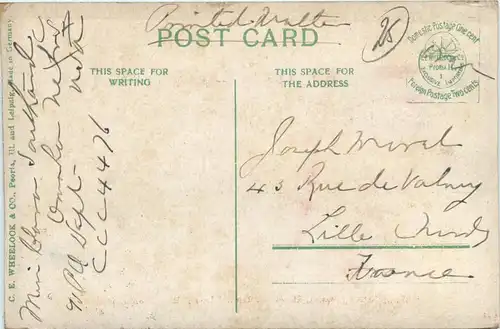 Printed Matter
25
POST CARD
Domestic Postage One Cent
Foreign Postage Two Cents
THIS SPACE FOR
WRITING
THIS SPACE FOR
THE ADDRESS
Joseph
43 Rue de Valmy
Lille Nord
France
Miss Clara
Omaha Nebr
USA
Dept
CCC 4476
C. E. WHEELOCK & CO., Peoria, Ill. and Leipzig. Made in Germany